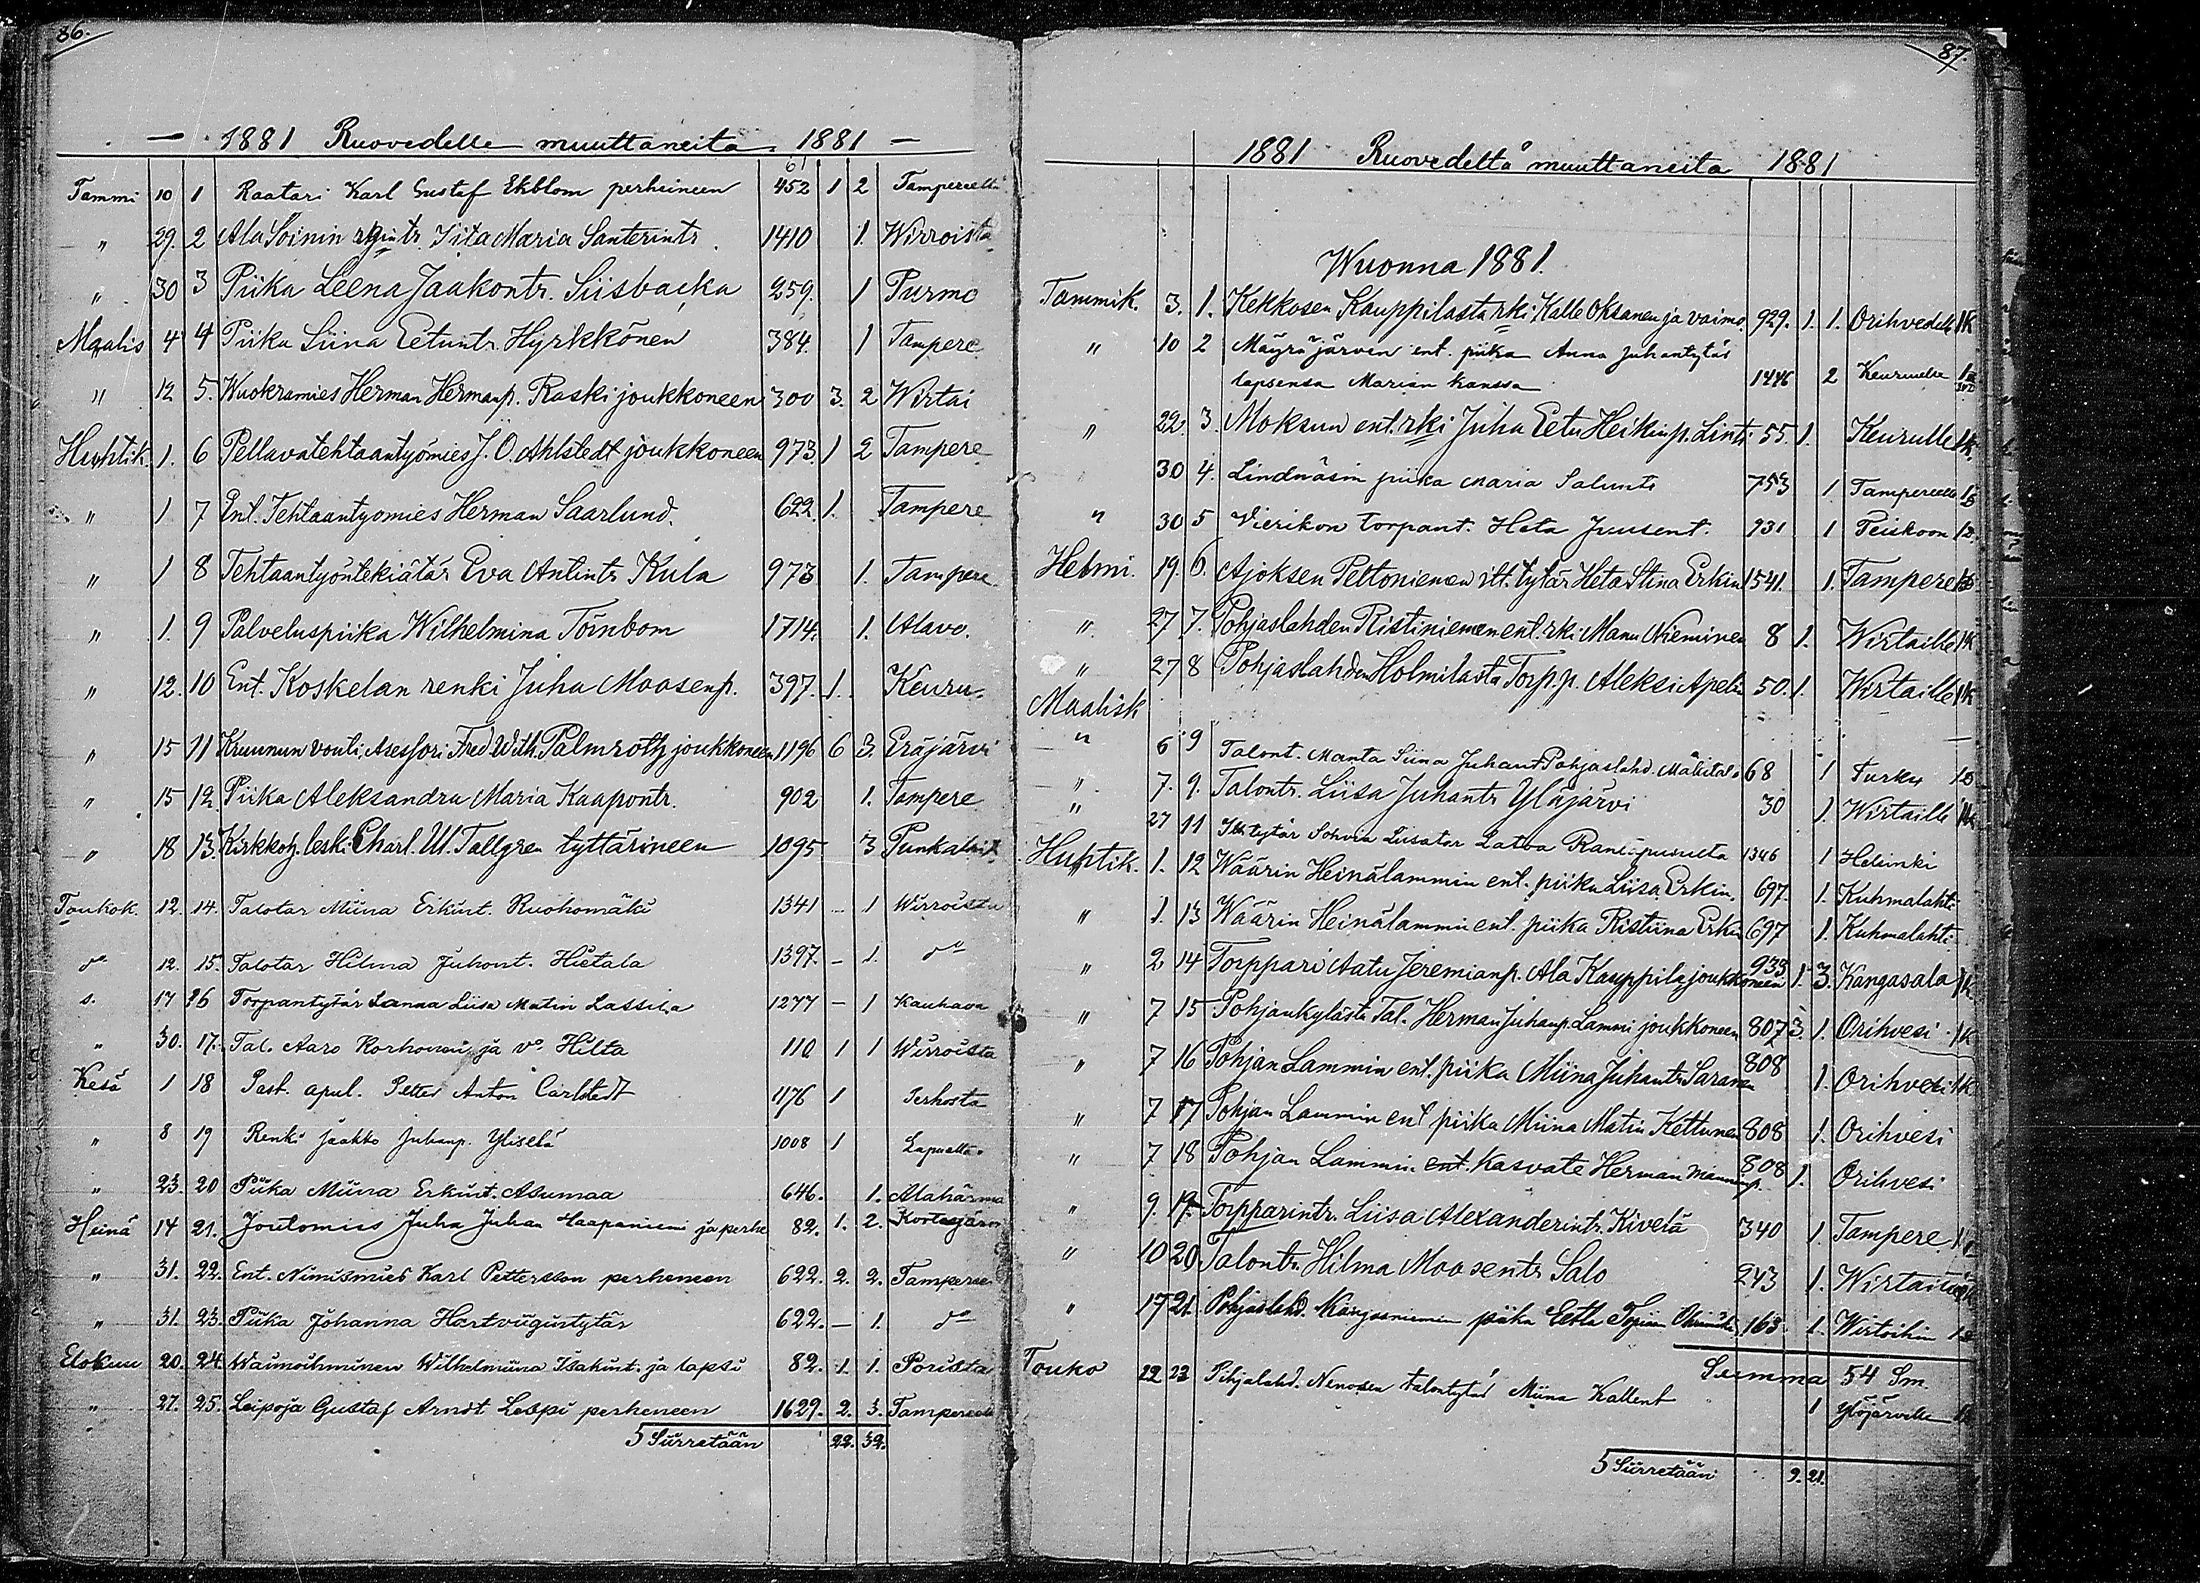 86.
— 1881 Ruovedelle muuttaneita 1881 —
61
Tammi 10 1 Raatari Karl Gustaf Ekblom perheineen 452 1 2 Tampereelta
" 29. 2 Ala Soinin Iita Maria Santerintr. 1410 1. Wirroista
" 30 3 Piika Leena Jaakontr. Siisbacka 259. 1 Purmo
Maalis 4 4 Piika Siina Eetuntr. Hyrkkönen 384. 1 Tampere
" 12 5. Wuokramies Herman Hermanp. Raski joukkoneen 300 3. 2 Wirtai
Huhtik. 1. 6 Pellavatehtaantyömies J. O. Ahlstedt joukkoneen 973. 1 2 Tampere
" 1 7 Ent. Tehtaantyomies Herman Saarlund. 622. 1. Tampere
" 1 8 Tehtaantyöntekiätär Eva Antintr Kula 973 1. Tampere
" 1. 9 Palveluspiika Wilhelmina Törnbom 1714. 1. Alavo.
" 12. 10 Ent. Koskelan renki Juha Moosenp. 397. 1. Keuru
" 15 11 Kruunun vouti, Asessori Fred. Wilh. Palmroth joukkoneen 1196 6 3. Eräjärvi
" 15 12. Piika Aleksandra Maria Kaapontr. 902 1. Tampere
" 18 13. Kirkkoh. leski Charl. Ul. Tallgren tyttärineen 1095 3 Punkalait.
Toukok. 12. 14. Talotar Miina Erkint. Ruohomäki 1341 – 1 Wirroista
do 12. 15. Talotar Hilma Juhont. Hietala 1397. – 1. do
s. 17 16 Torpantytär Sanna Liisa Matin Lassila 1277 – 1 Kauhava
" 30. 17. Tal. Aaro Korhonen ja vo. Hilta 110 1 1 Wirroista
Kesä 1 18 Past. apul. Petter Anton Carlstedt 1176 1 Perhosta
" 8 19 Renki Jaakko Juhanp. Yliselä 1008 1 Lapualta.
" 23. 20 Piika Miina Erkint. Asumaa 646. 1. Alahärmä
Heinä 14 21. Joutomies Juha Juhan Haapaniemi ja perhe 82. 1. 2. Kortesjärvi
" 31. 22. Ent. Nimismies Karl Pettersson perheneen 622. 2. 2. Tampereen
" 31. 23. Piika Johanna Hartviigintytär 622. – 1. do
Elokuu 20. 24. Waimoihminen Wilhelmiina Isakint. ja lapsi 82. 1. 1. Porista
" 27. 25. Leipoja Gustaf Arndt Lespi perheneen 1629. 2. 3. Tampereelta
Siirretään 22. 32.
87.
1881 Ruovedeltä muuttaneita 1881
Wuonna 1881.
Tammik. 3. 1. Kekkosen Kauppilasta rki Kalle Oksanen ja vaimo 929. 1. 1. Orihvedelle 1k
" 10 2 Mäyräjärven ent. piika Anna Juhantytär
lapsensa Marian kanssa 1446 2 Keuruulle
" 22. 3. Moksun ent. rki Juha Eetu Heikinp. Lint. 55. 1. Keurulle 1k.
30 4. Lindnäsin piika Maria Saluntr 753 1 Tampereelle
" 30 5 Vierikon torpant. Heta Juusent. 931 1 Teiskoon
Helmi. 19. 6. Ajoksen Peltoniemen itt. tytär Heta Stina Erkin 1541. 1. Tampere
" 27 7. Pohjaslahden Ristiniemen ent. rki Manu Nieminen 8 1. Wirtaille 1k
" 27 8 Pohjaslahden Holmilasta Torp. p. Aleksi Apelin 50. 1. Wirtaille 1k
Maalisk
" 6 9 Talont. Manta Siina Juhant. Pohjaslahd. Mäkital. 68 1 Turku
" 7. 9. Talontr. Liisa Juhantr Yläjärvi 30 1. Wirtaille
" 27 11 Itt. tytär Sohvia Latva 1346 1 Helsinki
Huhtik. 1. 12 Wäärin Heinälammin ent. piika Liisa Erkin. 697. 1. Kuhmalahti
" 1. 13 Wäärin Heinälammin ent. piika Ristiina Erkin 697 1. Kuhmalahti
" 2 14 Torppari Aatu Jeremianp. Ala Kauppila joukkoneen 933 1. 3. Kangasala 1k
" 7 15 Pohjankylästä Tal. Herman Juhanp. Lammi joukkoneen 807 3. 1. Orihvesi 1k
" 7 16 Pohjan Lammin ent. piika Miina Juhantr Saranen 808 1. Orihvesi 1k
" 7 17 Pohjan Lammin ent piika Miina Matin Kettunen 808 1. Orihvesi
" 7 18 Pohjan Lammin ent. Kasvate Herman Manninp. 808 1. Orihvesi
" 9. 19. Torpparintr. Liisa Alexanderintr. Kivelä 340 1. Tampere
" 10 20 Talontr. Hilma Moosentr Salo 243 1. Wirtaille
" 17 21. Pohjaslahd. Kangasniemen piika Eetla 163 1. Wirtoihin
Summa 54 Sm.
Touko 22 23 Pihjalahd. Nenosen talontytär Miina Kallent 1 Ylöjärvelle
Siirretään 9. 21.